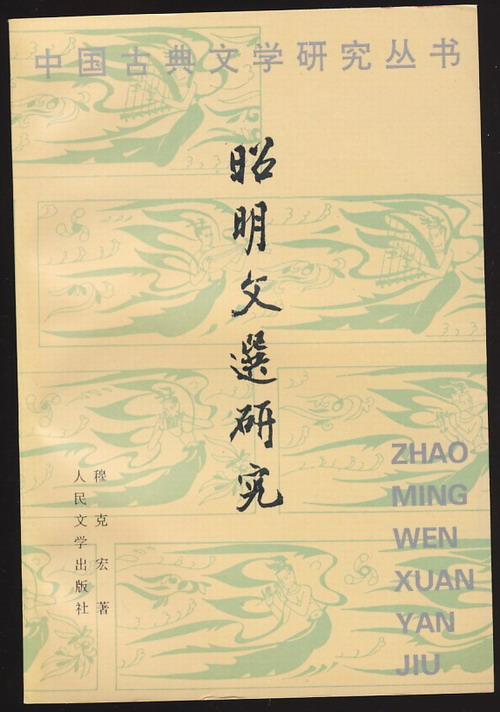 中国古典文学研究丛书
昭明文選研究
穆克宏 著
人民文学出版社
ZHAO
MING
WEN
XUAN
YAN
JIU